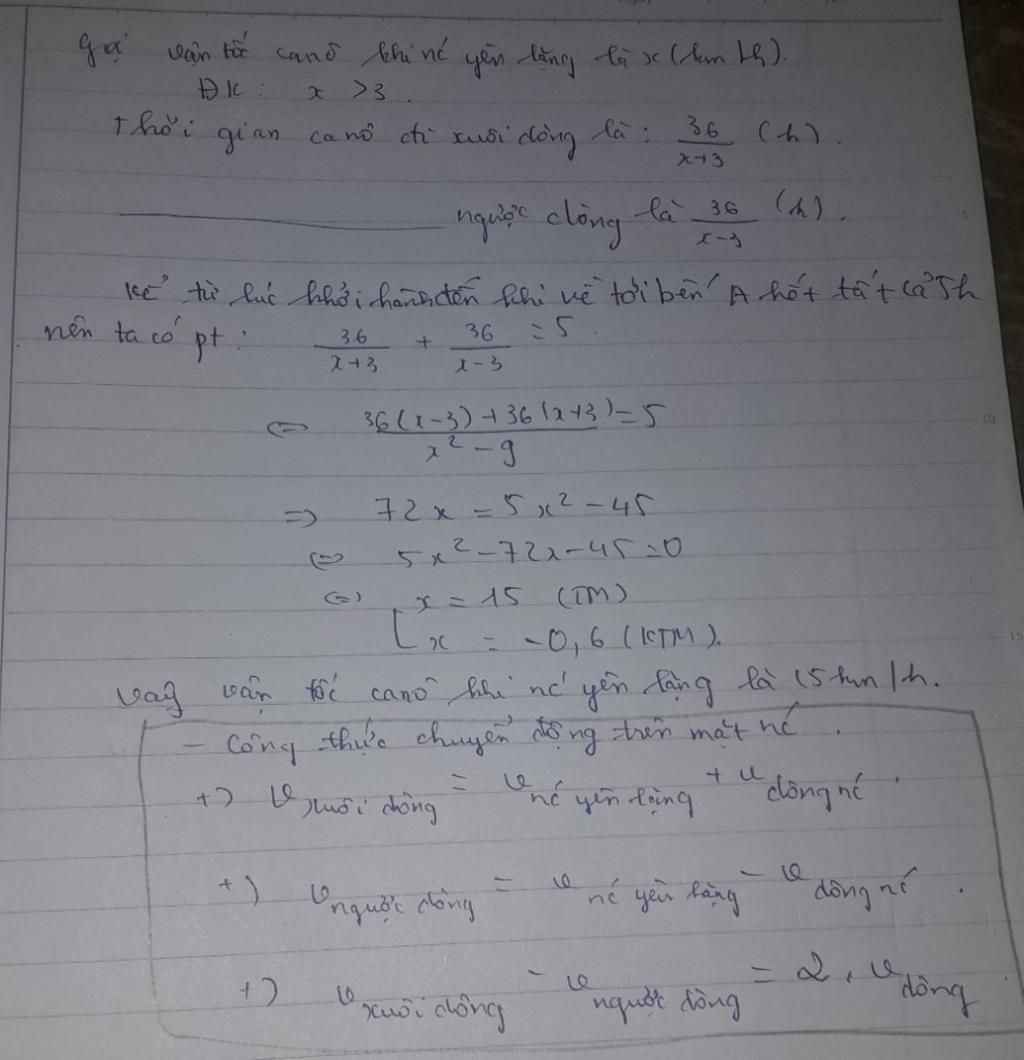 Gọi vận tốc canô khi nć yên lặng là x (km/h).
ĐK: x > 3.
Thời gian canô đi xuôi dòng là: 36/(x+3) (h).
ngược dòng là 36/(x-3) (h).
Kể từ lúc khởi hành đến khi về tới bến A hết tất cả 5h
nên ta có pt: 36/(x+3) + 36/(x-3) = 5.
<=> (36(x-3)+36(x+3))/(x²-9) = 5
=> 72x = 5x² - 45
<=> 5x² - 72x - 45 = 0
<=> [ x = 15 (TM)
x = -0,6 (KTM).
Vậy vận tốc canô khi nć yên lặng là 15 km/h.
- Công thức chuyển động trên mặt nć.
+) v xuôi dòng = v nć yên lặng + v dòng nć.
+) v ngược dòng = v nć yên lặng - v dòng nć.
+) v xuôi dòng - v ngược dòng = 2. v dòng